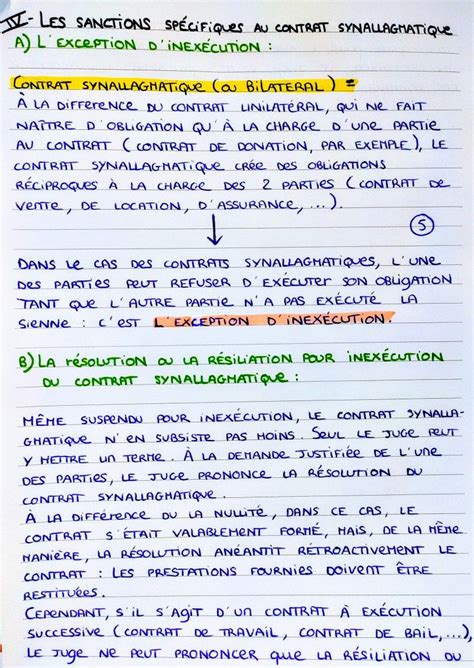 IV - LES SANCTIONS SPÉCIFIQUES AU CONTRAT SYNALLAGMATIQUE
A) L'EXCEPTION D'INEXÉCUTION :
CONTRAT SYNALLAGMATIQUE (OU BILATERAL) =
À LA DIFFERENCE DU CONTRAT UNILATÉRAL, QUI NE FAIT
NAÎTRE D'OBLIGATION QU'À LA CHARGE D'UNE PARTIE
AU CONTRAT (CONTRAT DE DONATION, PAR EXEMPLE), LE
CONTRAT SYNALLAGMATIQUE CRÉE DES OBLIGATIONS
RÉCIPROQUES À LA CHARGE DES 2 PARTIES (CONTRAT DE
VENTE, DE LOCATION, D'ASSURANCE, ...).
5
DANS LE CAS DES CONTRATS SYNALLAGMATIQUES, L'UNE
DES PARTIES PEUT REFUSER D'EXÉCUTER SON OBLIGATION
TANT QUE L'AUTRE PARTIE N'A PAS EXÉCUTÉ LA
SIENNE : C'EST L'EXCEPTION D'INEXÉCUTION.
B) LA RÉSOLUTION OU LA RÉSILIATION POUR INEXÉCUTION
DU CONTRAT SYNALLAGMATIQUE :
MÊME SUSPENDU POUR INEXÉCUTION, LE CONTRAT SYNALLA-
GMATIQUE N'EN SUBSISTE PAS MOINS. SEUL LE JUGE PEUT
Y METTRE UN TERME. À LA DEMANDE JUSTIFIÉE DE L'UNE
DES PARTIES, LE JUGE PRONONCE LA RÉSOLUTION DU
CONTRAT SYNALLAGMATIQUE.
À LA DIFFÉRENCE DE LA NULLITÉ, DANS CE CAS, LE
CONTRAT S'ÉTAIT VALABLEMENT FORMÉ, MAIS, DE LA MÊME
MANIÈRE, LA RÉSOLUTION ANÉANTIT RÉTROACTIVEMENT LE
CONTRAT : LES PRESTATIONS FOURNIES DOIVENT ÊTRE
RESTITUÉES.
CEPENDANT, S'IL S'AGIT D'UN CONTRAT À EXÉCUTION
SUCCESSIVE (CONTRAT DE TRAVAIL, CONTRAT DE BAIL, ...),
LE JUGE NE PEUT PRONONCER QUE LA RÉSILIATION DU